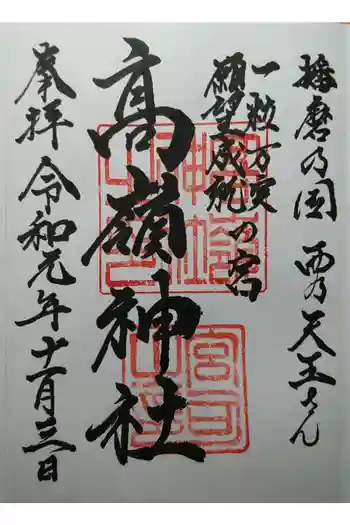 播磨の国 西の天王さん
一粒万実
願望成就の宮
高嶺神社
奉拝 令和元年十一月三日